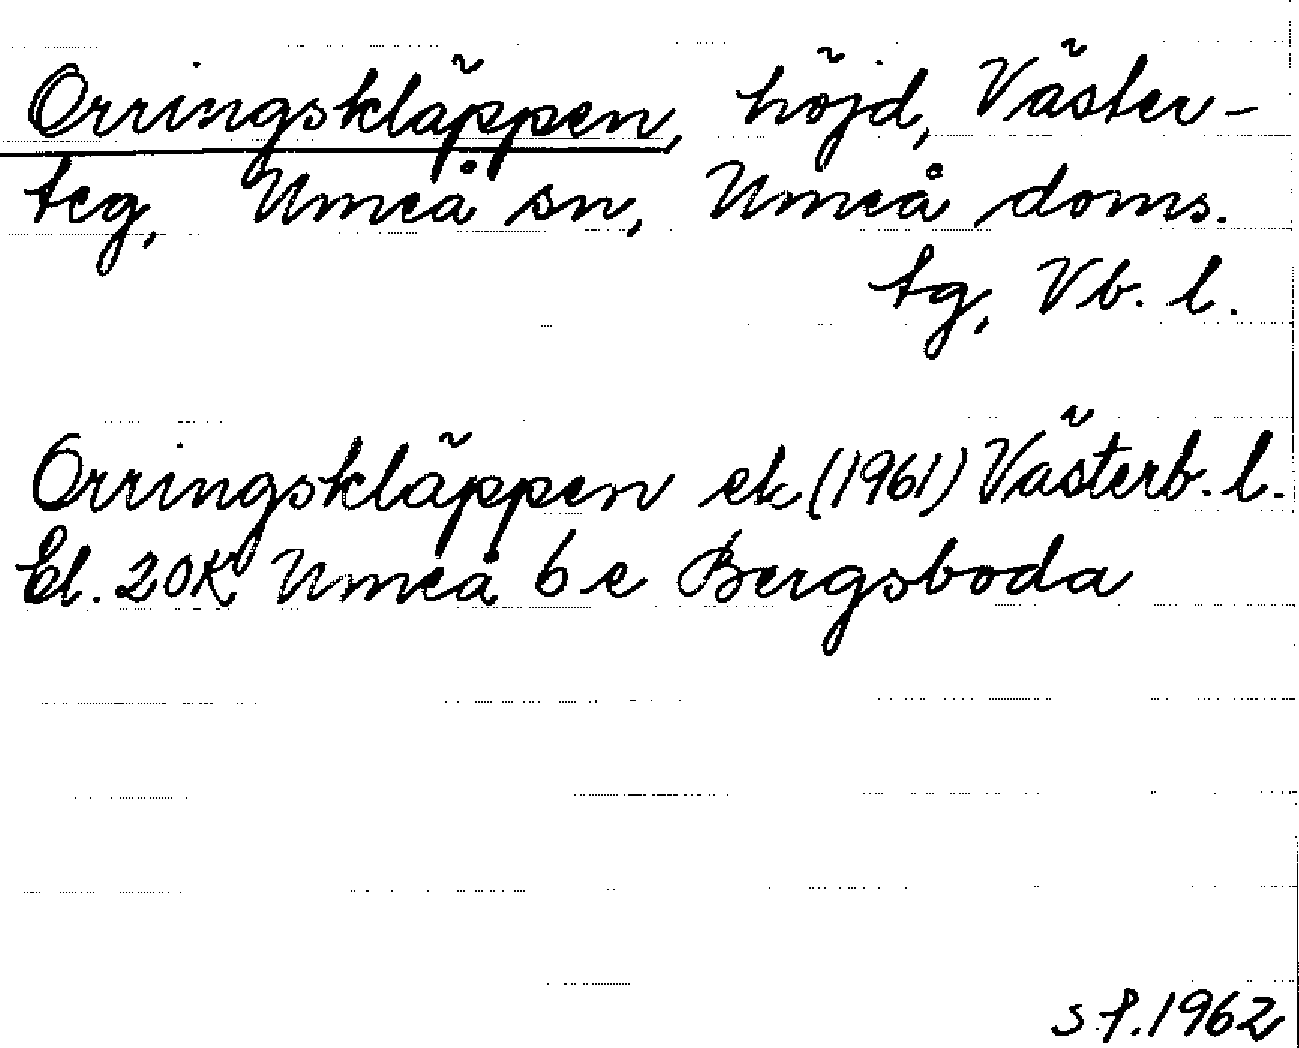 Orringskläppen, höjd, Väster-
teg, Umeå sn, Umeå doms.
tg, Vb. l.
Orringskläppen ek (1961) Västerb. l.
Bl. 20K Umeå 6 e Bergsboda
s.f. 1962